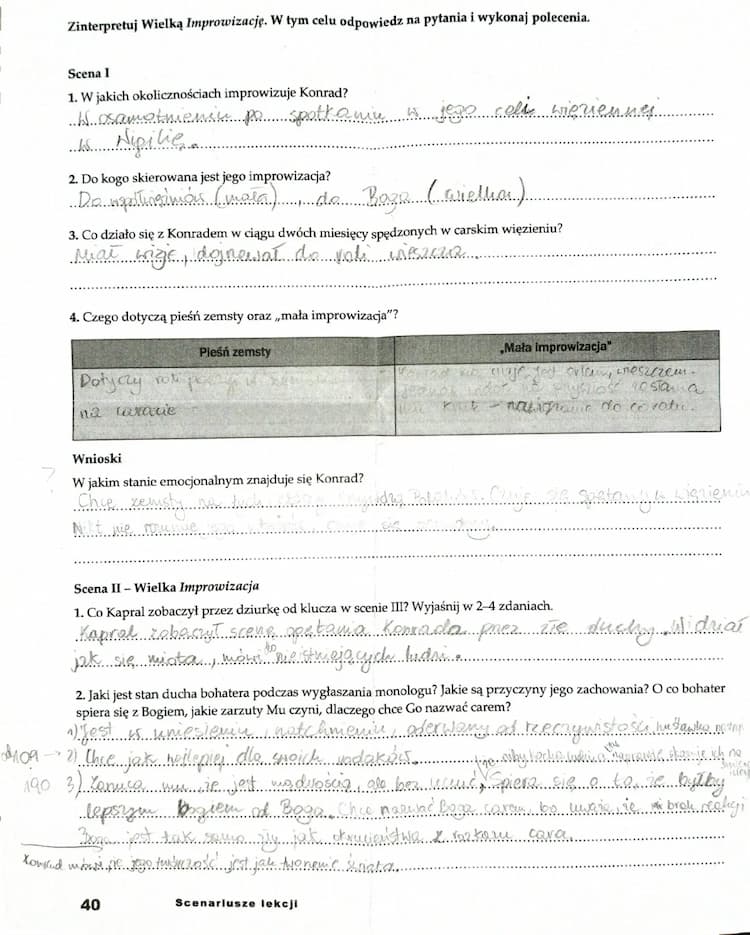 Zinterpretuj Wielką Improwizację. W tym celu odpowiedz na pytania i wykonaj polecenia.
Scena I
1. W jakich okolicznościach improwizuje Konrad?
W osamotnieniu po spotkaniu w jego celi więziennej
w Wigilię.
2. Do kogo skierowana jest jego improwizacja?
Do współwięźniów (mała), do Boga (wielka)
3. Co działo się z Konradem w ciągu dwóch miesięcy spędzonych w carskim więzieniu?
Miał wizje, dojrzewał do roli wieszcza.
4. Czego dotyczą pieśń zemsty oraz „mała improwizacja"?
Pieśń zemsty
„Mała improwizacja"
Dotyczy
na caracie
jest orłem, wieszczem.
została
kruk – nawiązanie do
Wnioski
?
W jakim stanie emocjonalnym znajduje się Konrad?
Chce zemsty na tych Czuje się więzieniu
Nikt nie
Scena II – Wielka Improwizacja
1. Co Kapral zobaczył przez dziurkę od klucza w scenie III? Wyjaśnij w 2–4 zdaniach.
Kapral zobaczył scenę opętania Konrada przez złe duchy. Widział
jak się miota, mówi do nieistniejących ludzi.
2. Jaki jest stan ducha bohatera podczas wygłaszania monologu? Jakie są przyczyny jego zachowania? O co bohater
spiera się z Bogiem, jakie zarzuty Mu czyni, dlaczego chce Go nazwać carem?
1) Jest w uniesieniu, natchnieniu, oderwany od rzeczywistości
109 → 2) Chce jak najlepiej dla swoich rodaków.
190 3) Zarzuca mu, że jest mądrością, ale bez uczuć, Spiera się o to, że byłby
lepszym Bogiem od Boga. Chce nazwać Boga carem, bo uważa, że brak reakcji
Boga jest tak samo zły jak okrucieństwa z rozkazu cara.
Konrad mówi, że jego twórczość jest jak tworzenie świata.
40 Scenariusze lekcji